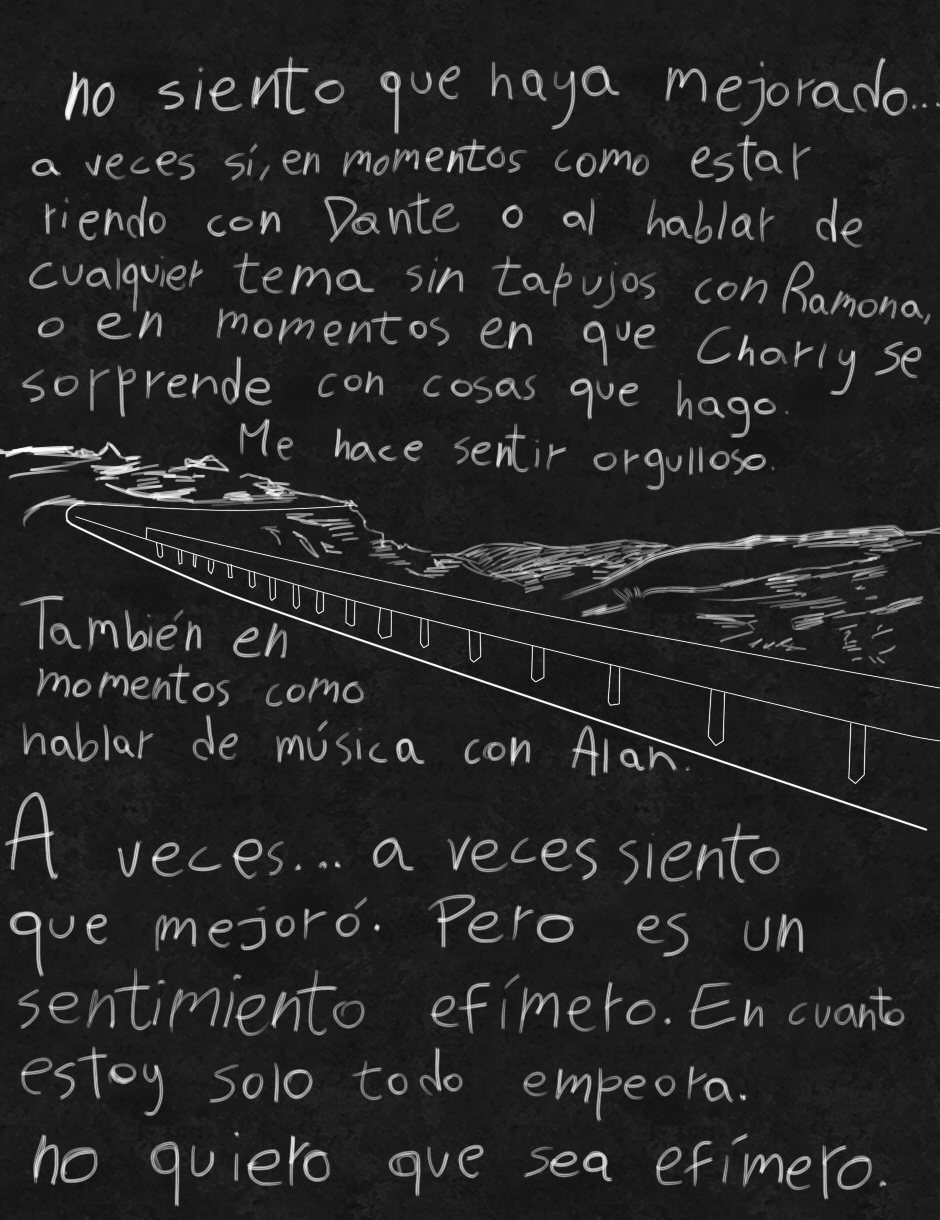 no siento que haya mejorado...
a veces sí, en momentos como estar
riendo con Dante o al hablar de
cualquier tema sin tapujos con Ramona,
o en momentos en que Charly se
sorprende con cosas que hago.
Me hace sentir orgulloso.
También en
momentos como
hablar de música con Alan.
A veces... a veces siento
que mejoró. Pero es un
sentimiento efímero. En cuanto
estoy solo todo empeora.
no quiero que sea efímero.